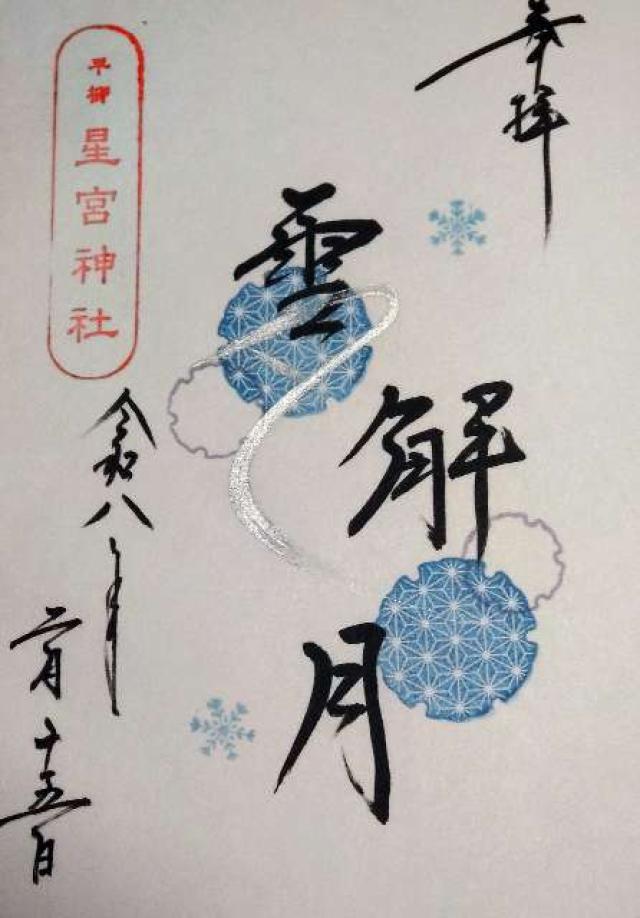 奉拝
雪解月
平柳
星宮神社
令和八年
二月十五日